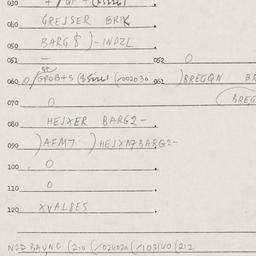 030
040 GREJSER BRIK
050 BARG $ )-INDZL
051 — 052 0
060 0/GROB+S ($5221 (/002030 061 )BREGQN BR
070 0 BREG
080 HEJXER BARG2-
090 )AFM7 )HEJXA7BARG2-
100 0
110 0
120 XVALBES
N2D BAUNC (210 (/024020 (/103140 (212